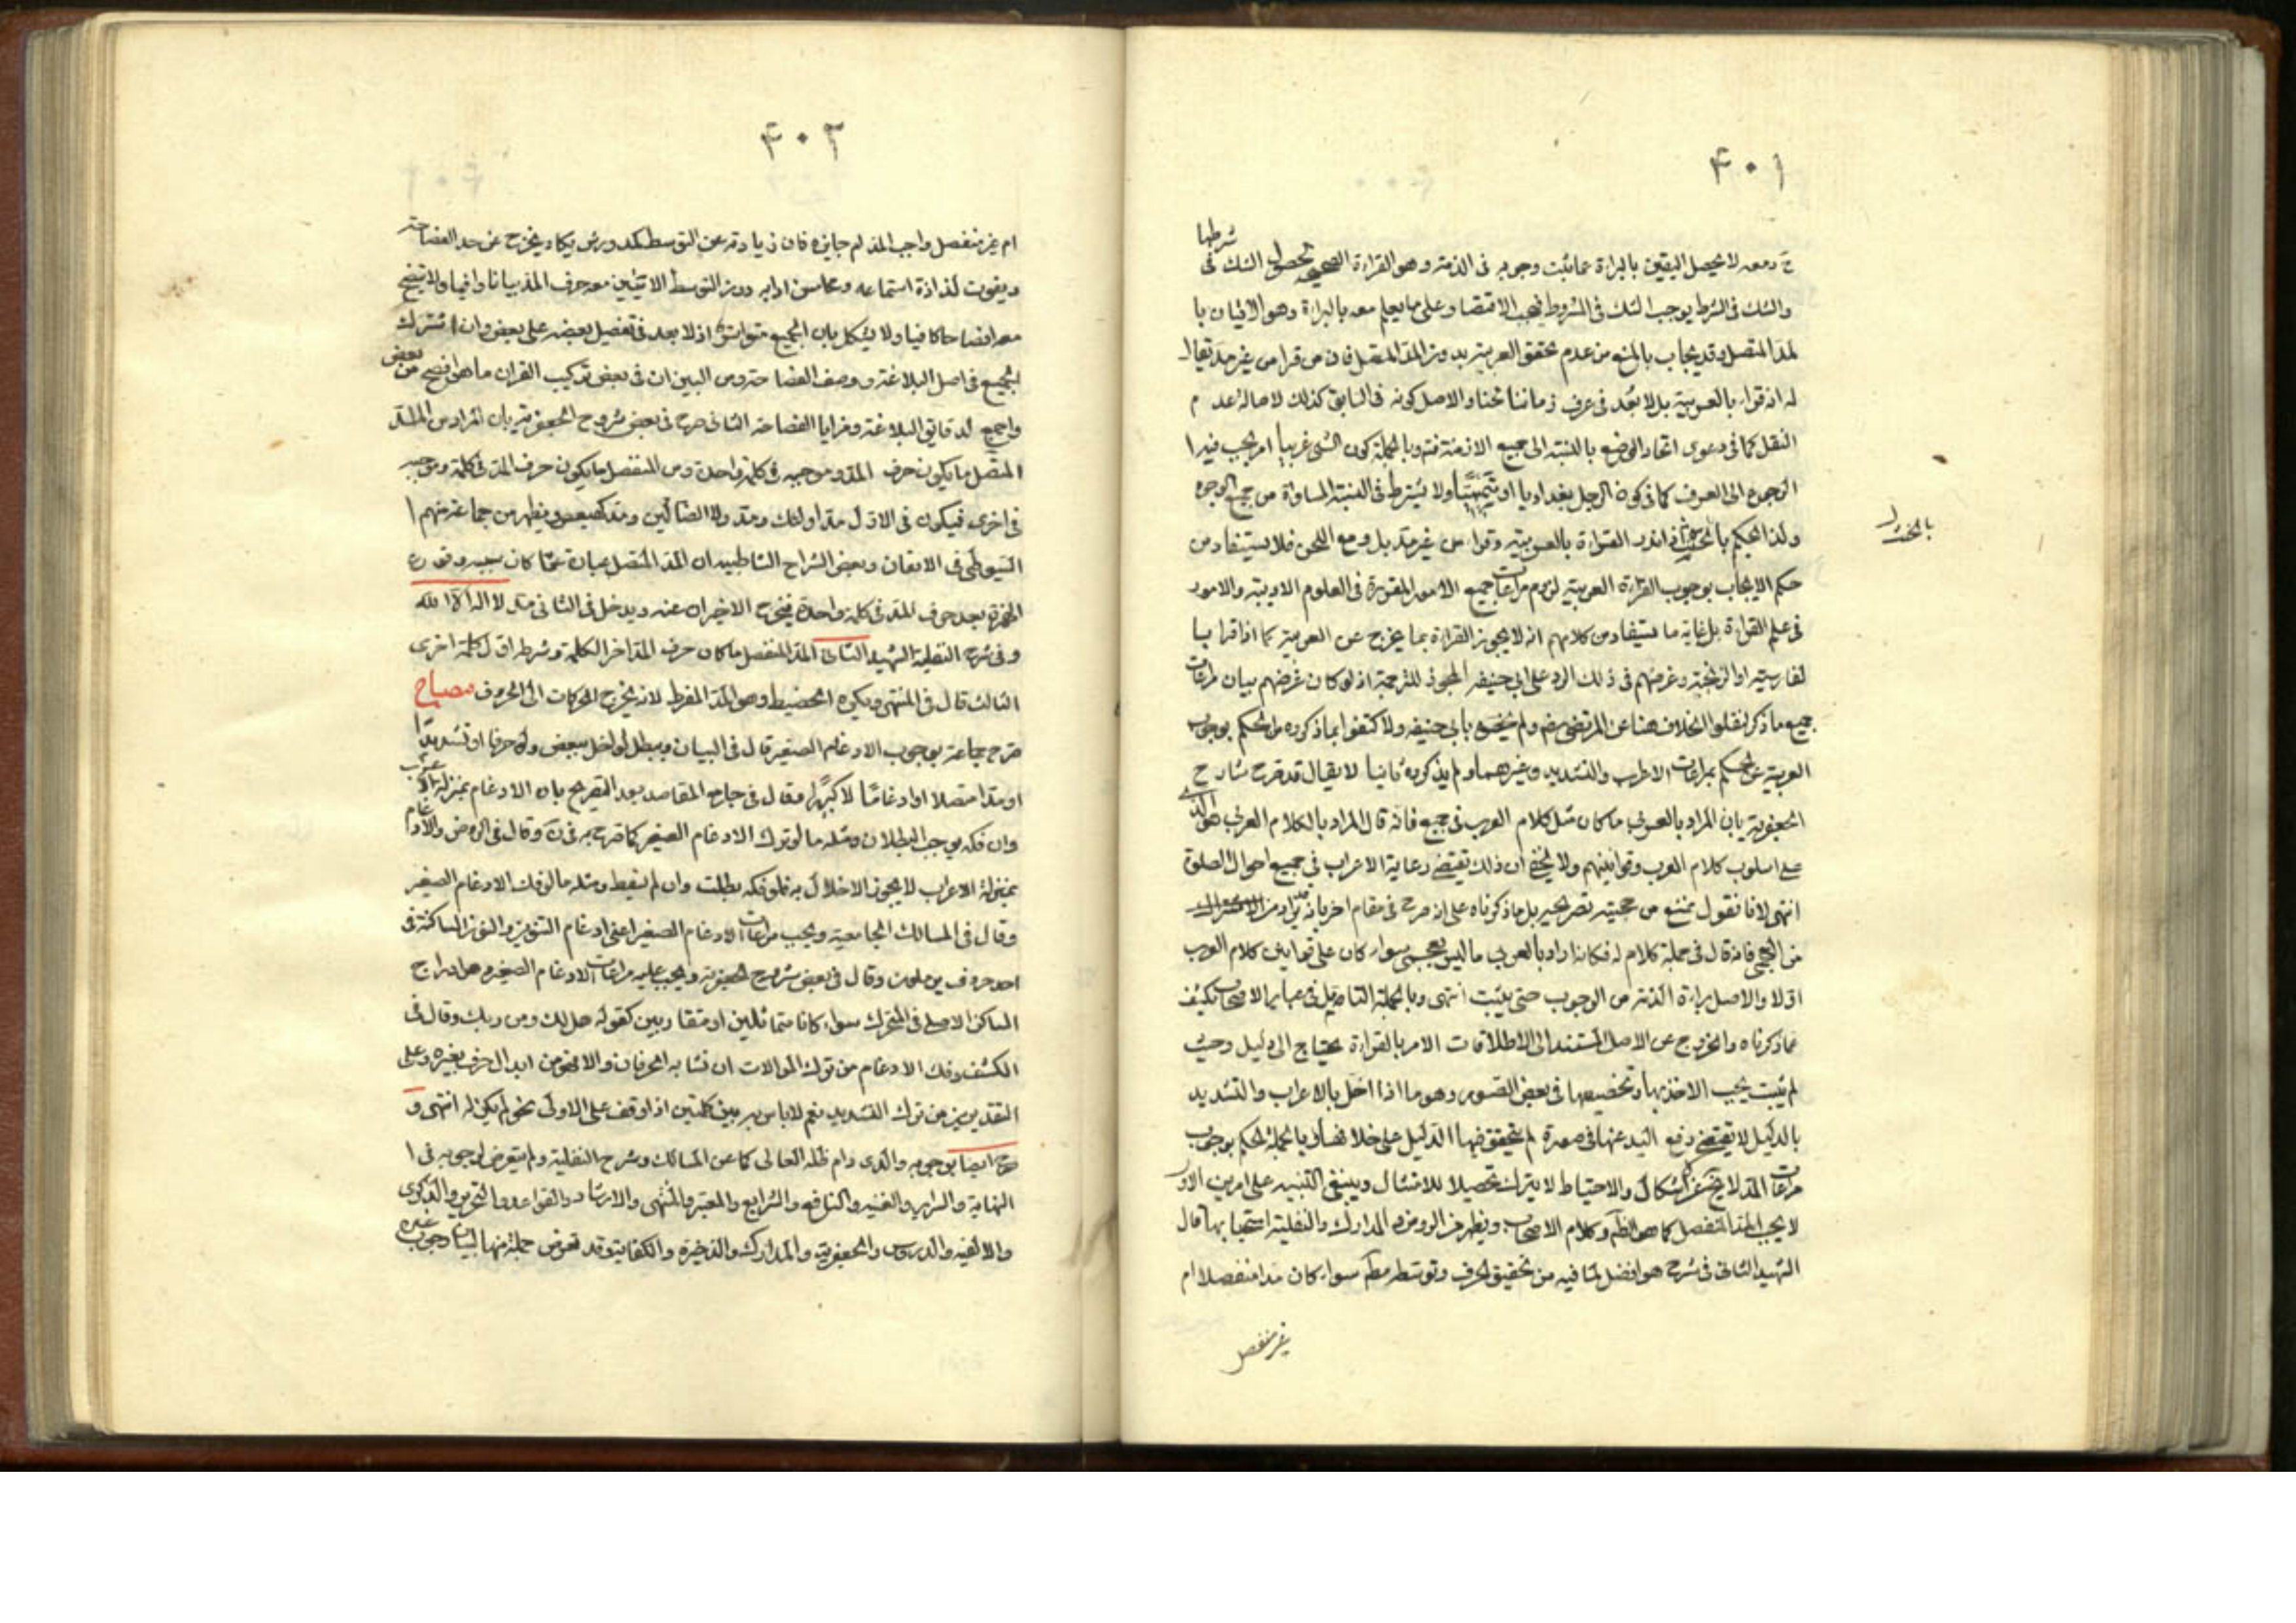 ٤٠١
شرطها
ح ومعه لا يحصل اليقين بالبراءة عما ثبت وجوبه فى الذمة وهو القراءة الصحيحة لحصول الشك فى
والشك فى الشرط يوجب الشك فى المشروط فيجب الاقتصار على ما يعلم معه بالبراءة وهو الاتيان با
لمد المتصل وقد يجاب بالمنع من عدم تحقق العربية بدون المد المتصل فان من قرا من غير مد يقال
له انه قرا بالعربية بل لا يعد فى عرف زماننا لحنا والاصل كونه فى السابق كذلك لاصالة عدم
النقل كما فى دعوى اتحاد الوضع بالنسبة الى جميع الازمنة فتم وبالجملة كون الشى عربيا امر يجب فيه ا
لرجوع الى العرف كما فى كون الرجل بغداديا او ولا يشترط فى النسبة المساواة من جميع الوجوه
ولذا يحكم بالحنث اذا نذر القراءة بالعربية وقرا من غير مد بل ومع اللحن فلا يستفاد من
حكم الاصحاب بوجوب القراءة العربية لزوم مراعات جميع الامور المقررة فى العلوم الادبية والامور
فى علم القراءة بل غاية ما يستفاد من كلامهم انه لا يجوز القراءة بما يخرج عن العربية كما اذا قرا با
لفارسية او الزنجية وغرضهم فى ذلك الرد على ابى حنيفة المجوز للترجمة اذ لو كان غرضهم بيان مراعات
جميع ما ذكر لنقلوا الخلاف هنا عن المرتضى رضه ولم يخصوه بابى حنيفة ولاكتفوا بما ذكروه من الحكم بوجوب
العربية عن الحكم بمراعات الاعراب والتشديد وغيرهما ولم يذكروه ثانيا لا يقال قد صرح شارح
الجعفرية بان المراد بالعربى ما كان مثل كلام العرب فى جميع فانه قال المراد بالكلام العربى هو الذى
على اسلوب كلام العرب وقوانينهم ولا يخفى ان ذلك يقتضى رعاية الاعراب فى جميع احوال الصلوة
انتهى لانا نقول نمنع من حجية تصريحه بل ما ذكرناه على انه صرح فى مقام اخر بانه
من العجمى فانه قال فى جملة كلام له فكانه اراد بالعربى ما ليس بعجمى سواء كان على قوانين كلام العرب
او لا والاصل براءة الذمة من الوجوب حتى يثبت انتهى وبالجملة التامل فى عباير الاصحاب يكشف
عما ذكرناه والخروج عن الاصل المستند الى الاطلاقات الامر بالقراءة يحتاج الى دليل وحيث
لم يثبت يجب الاخذ بها وتخصيصها فى بعض الصور وهو ما اذا اخل بالاعراب والتشديد
بالدليل لا يقتضى رفع اليد عنها فى صورة لم يتحقق فيها الدليل على خلافها وبالجملة الحكم بوجوب
مراعات المد لا يخ عن اشكال والاحتياط لا يترك تحصيلا للامتثال وينبغى التنبيه على امرين الاول
لا يجب المد المنفصل كما هو الظ من كلام الاصحاب ويظهر من الروض والمدارك والنفلية استحبابها قال
الشهيد الثانى فى شرح هو افضل لما فيه من تحقيق الحرف وتوسطه مط سواء كان مدا منفصلا ام
غير منفصل
٤٠٢
ام غير منفصل واجب المد ام جايزه فان زيادته عن التوسط كمد ورش يكاد يخرج عن حد الفصاحة
ويفوت لذاذة استماعه ومحاسن ادابه ودون التوسط لا يتبين معه حرف المد بيانا وافيا ولا يتضح
معه افصاحا كافيا ولا يشكل بان الجميع متواترة اذ لا بعد فى تفضيل بعضه على بعض وان اشترك
الجميع فى اصل البلاغة ووصف الفصاحة ومن البين ان فى بعض تركيب القران ما هو افصح من بعض
واجمع لدقايق البلاغة ومزايا الفصاحة الثانى صرح فى بعض شروح الجعفرية بان المراد من المد
المتصل ما يكون حرف المد وموجبه فى كلمة واحدة ومن المنفصل ما يكون حرف المد فى كلمة وموجبه
فى اخرى فيكون فى الاول مد اولئك ومد ولا الضالين ومد كهيعص ويظهر من جماعة منهم ا
لسيوطى فى الاتقان وبعض الشراح الشاطبية ان المد المتصل عبارة عما كان سببه وقوع
الهمزة بعد حرف المد فى كلمة واحدة فيخرج الاخيران عنه ويدخل فى الثانى مد لا اله الا الله
وفى شرح النفلية الشهيد الثانى المد المنفصل ما كان حرف المد اخر الكلمة وشرطه اول كلمة اخرى
الثالث قال فى المنتهى ويكره وهو المد المفرط لانه يخرج الحركات الى الحروف مصباح
صرح جماعة بوجوب الادغام الصغير قال فى البيان ويبطل لو اخل ببعض ولو حرفا او تشديدا
او مدا متصلا او ادغاما لا كبيرا وقال فى جامع المقاصد بعد التصريح بان الادغام بمنزلة الاعراب
وان فكه يوجب البطلان ومثله ما لو ترك الادغام الصغير كما صرح به فى ن وقال فى الروض والادغام
بمنزلة الاعراب لا يجوز الاخلال به فلو فكه بطلت وان لم يسقط ومثله ما لو فك الادغام الصغير
وقال فى المسالك الجامعية ويجب مراعات الادغام الصغير اعنى ادغام التنوين والنون الساكنة فى
احد حروف يرملون وقال فى بعض شروح الجعفرية ويجب عليه مراعات الادغام الصغير وهو ادراج
الساكن الاصلى فى المتحرك سواء كانا متماثلين او متقاربين كقوله هل لك ومن ربك وقال فى
الكشف وفك الادغام من ترك الموالات ان تشابه الحرفان والا فهو من ابدال حرف بغيره وعلى
التقديرين من ترك التشديد نعم لا باس به بين كلمتين اذا وقف على الاولى نحو لم يكن له انتهى و
صرح ايضا بوجوبه والدى دام ظله العالى كما عن المسالك وشرح النفلية ولم يتعرض لوجوبه فى ا
لنهاية والسراير والغنية والنافع والشرايع والمعتبر والمنتهى والارشاد والقواعد والتحرير والذكرى
والالفية والدروس والجعفرية والمدارك والذخيرة والكفاية وقد تعرض جملة منها لبيان وجوب